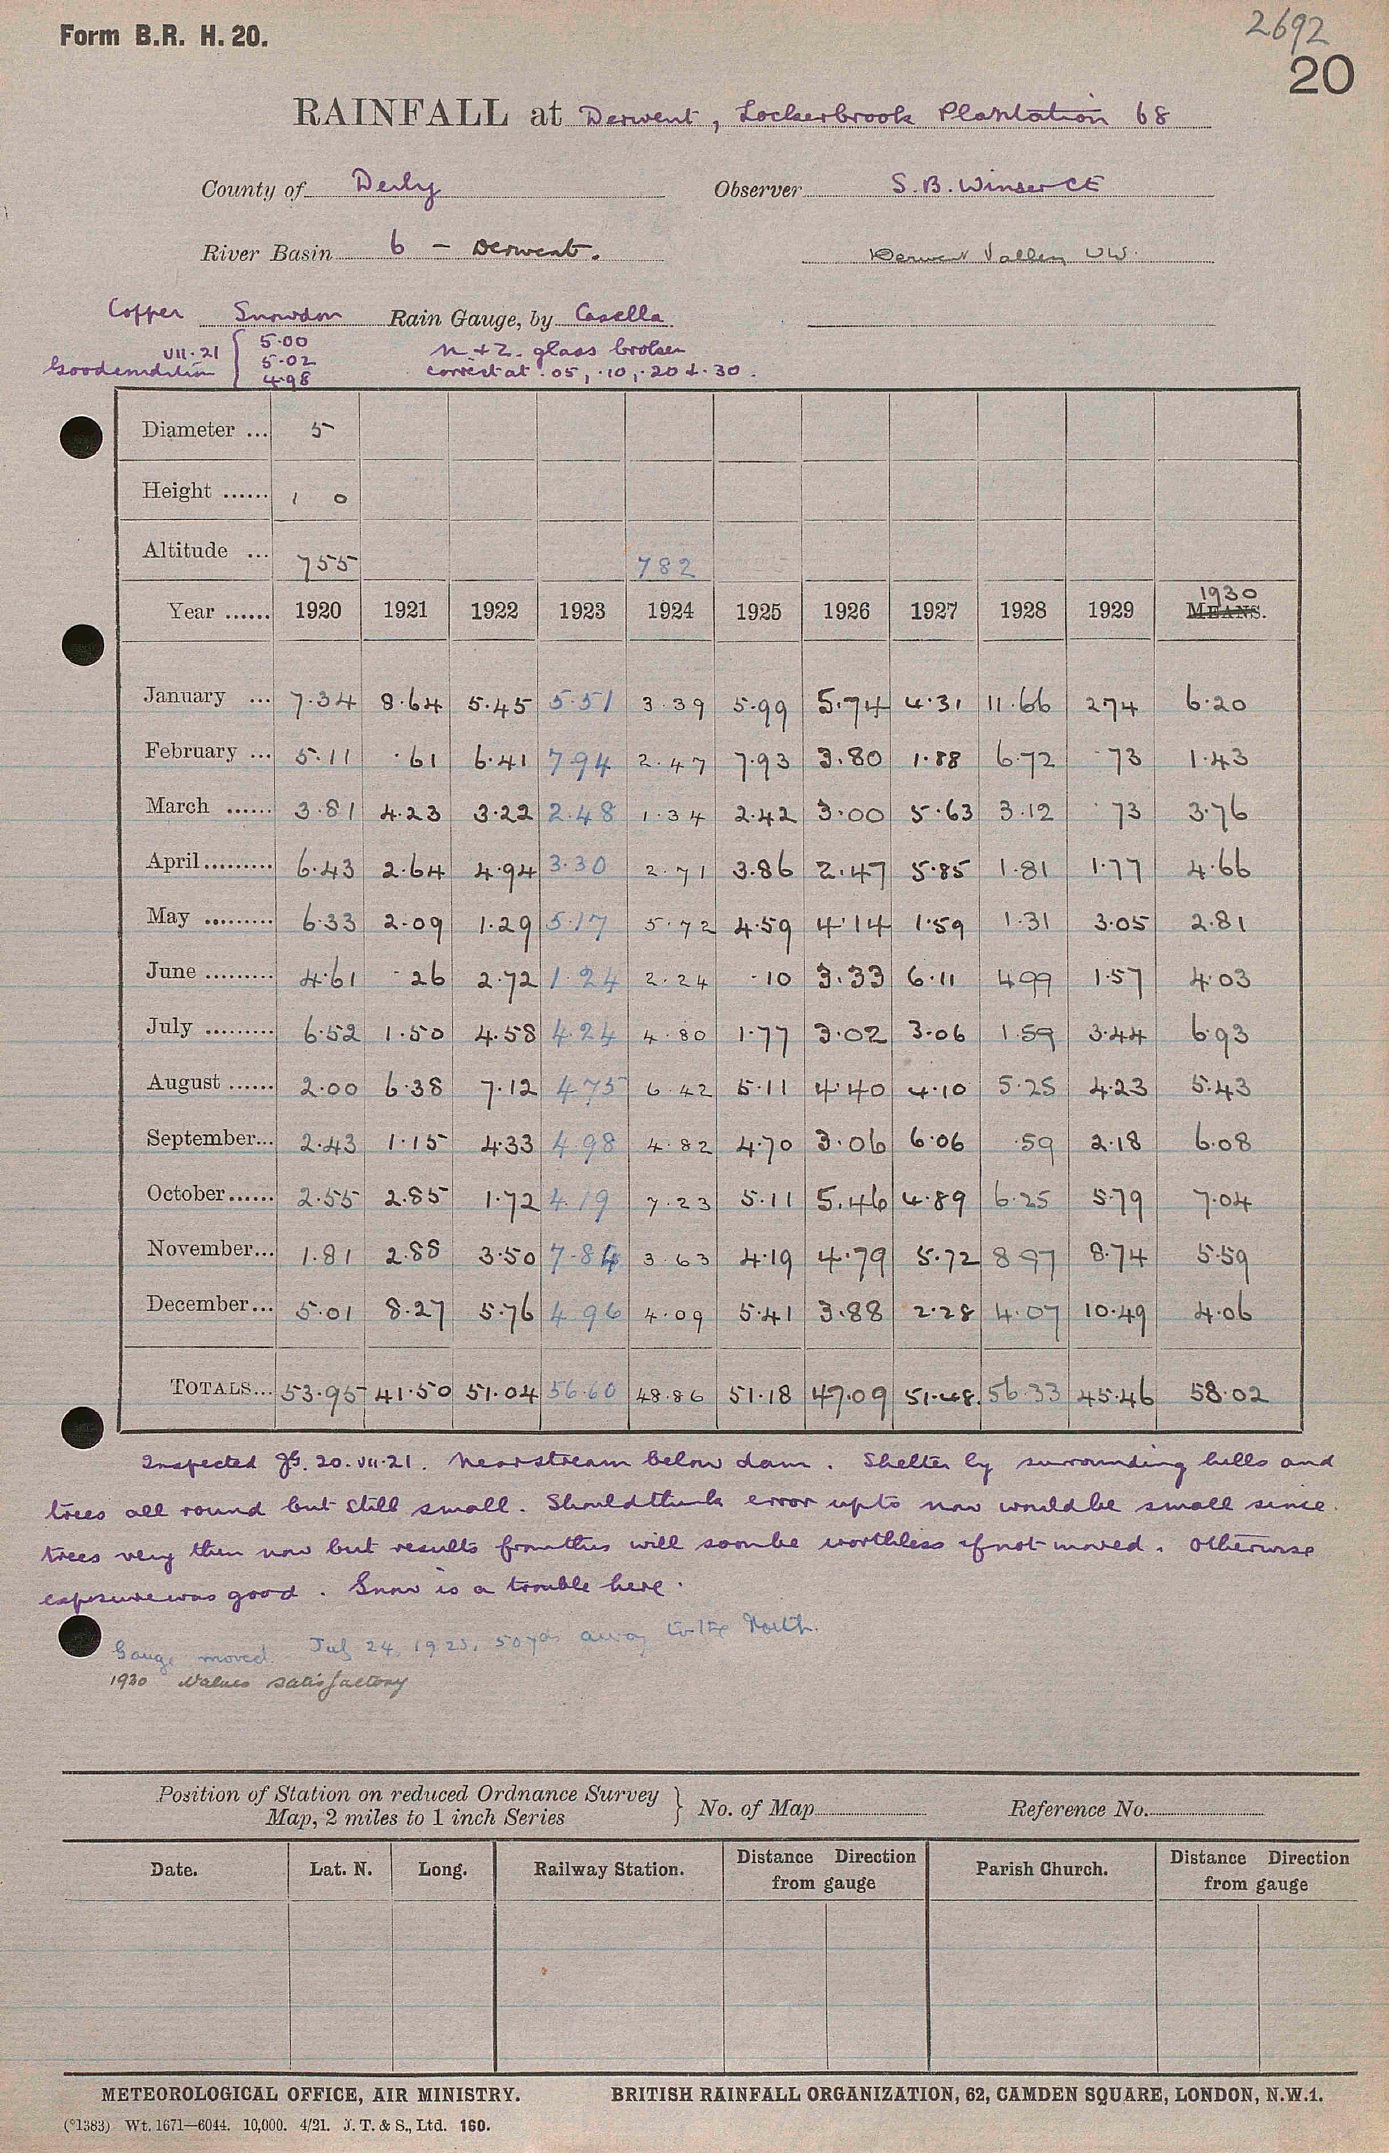 Form B.R. H. 20.
2692
20
RAINFALL at Derwent, Lockerbrook Plantation 68
County of Derby Observer S.B. Winser CE
River Basin 6 - Derwent. Derwent Valley UW.
Copper Snowdon Rain Gauge, by Casella
Good condition VII.21 { 5.00 5.02 4.98
glass broken
correct at .05, .10, .20 & .30.
Diameter ... 5
Height ...... 1 0
Altitude ... 755 782
Year ...... 1920 1921 1922 1923 1924 1925 1926 1927 1928 1929 MEANS. 1930
January ... 7.34 8.64 5.45 5.51 3.39 5.99 5.74 4.31 11.66 2.74 6.20
February ... 5.11 .61 6.41 7.94 2.47 7.93 3.80 1.88 6.72 .73 1.43
March ...... 3.81 4.23 3.22 2.48 1.34 2.42 3.00 5.63 3.12 .73 3.76
April......... 6.43 2.64 4.94 3.30 2.71 3.86 2.47 5.85 1.81 1.77 4.66
May ......... 6.33 2.09 1.29 5.17 5.72 4.59 4.14 1.59 1.31 3.05 2.81
June ......... 4.61 .26 2.72 1.24 2.24 .10 3.33 6.11 4.99 1.57 4.03
July ......... 6.52 1.50 4.58 4.24 4.80 1.77 3.02 3.06 1.59 3.44 6.93
August ...... 2.00 6.38 7.12 4.75 6.42 5.11 4.40 4.10 5.25 4.23 5.43
September... 2.43 1.15 4.33 4.98 4.82 4.70 3.06 6.06 .59 2.18 6.08
October...... 2.55 2.85 1.72 4.19 7.23 5.11 5.46 4.89 6.25 5.79 7.04
November... 1.81 2.88 3.50 7.84 3.63 4.19 4.79 5.72 8.97 8.74 5.59
December... 5.01 8.27 5.76 4.96 4.09 5.41 3.88 2.28 4.07 10.49 4.06
TOTALS... 53.95 41.50 51.04 56.60 48.86 51.18 47.09 51.48. 56.33 45.46 58.02
Inspected 20.VII.21. Near stream below dam. Shelter by surrounding hills and
trees all round but still small. Should think error up to now would be small since
trees very thin now but results from this will soon be worthless if not moved. Otherwise
exposure was good. Snow is a trouble here.
Gauge moved July 24, 1923, 50 yds away to the North.
1930 Values satisfactory
Position of Station on reduced Ordnance Survey Map, 2 miles to 1 inch Series } No. of Map Reference No.
Date. Lat. N. Long. Railway Station. Distance Direction from gauge Parish Church. Distance Direction from gauge
METEOROLOGICAL OFFICE, AIR MINISTRY. BRITISH RAINFALL ORGANIZATION, 62, CAMDEN SQUARE, LONDON, N.W.1.
(*1383) Wt. 1671—6044. 10,000. 4/21. J. T. & S., Ltd. 160.